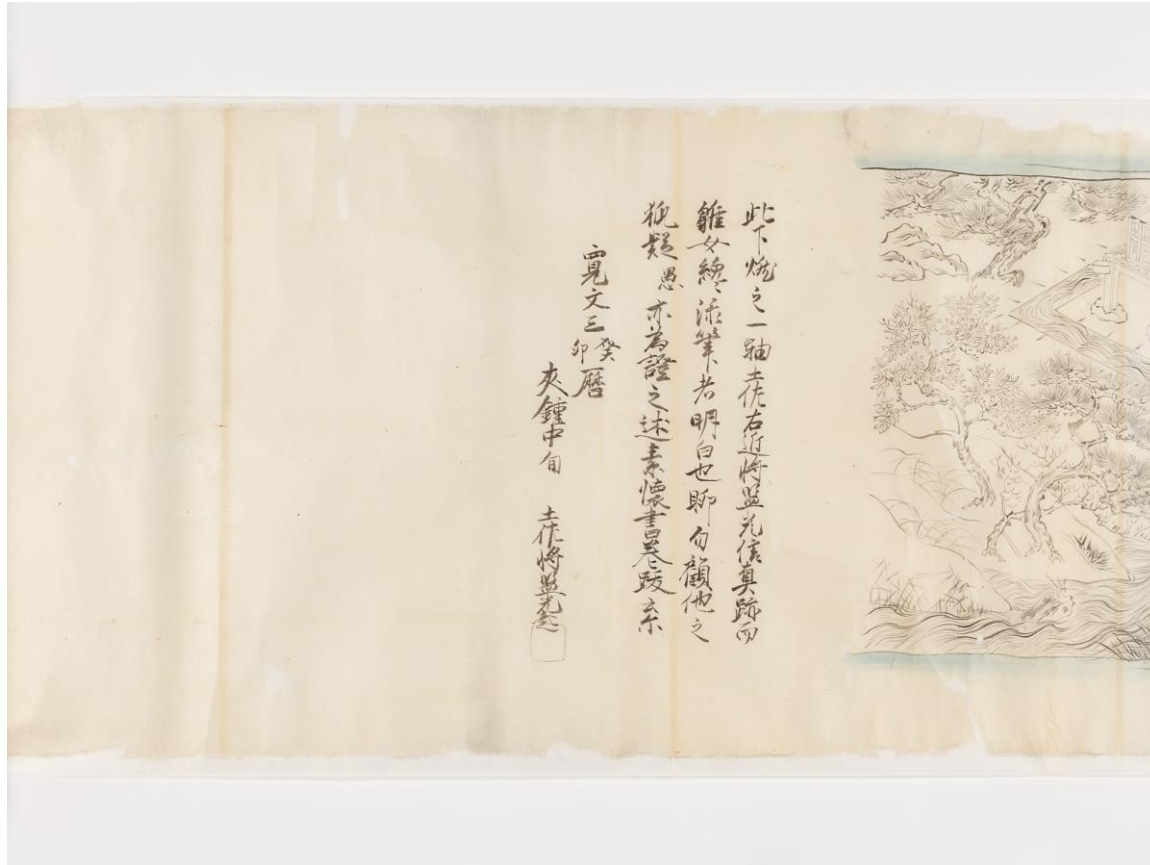 此下焼之一軸土佐右近将監光信真跡而
雖女絵添筆者明白也聊勿顧他之
狐疑愚亦為證之述素懐書巻跋云尓
寛文三癸卯暦
夾鐘中旬 土佐将監光起